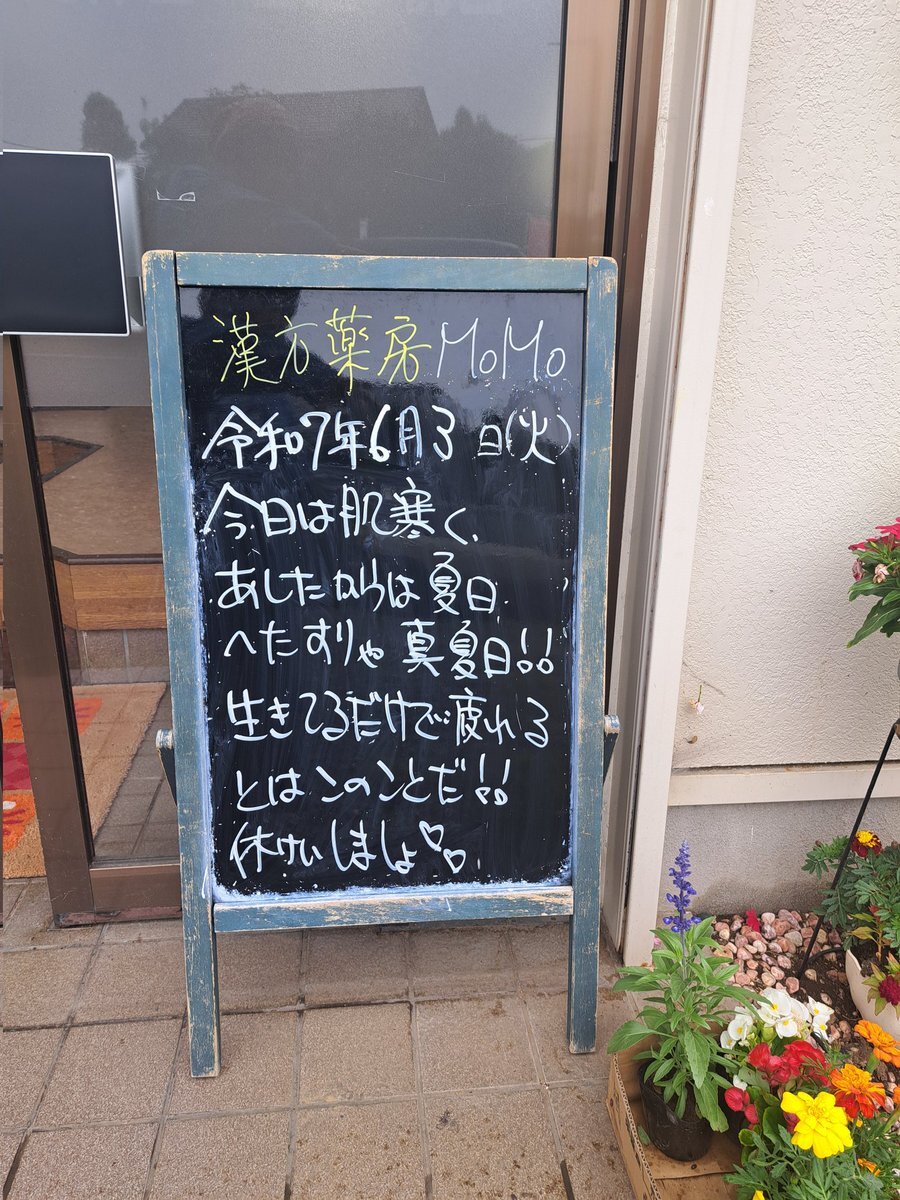 漢方薬房MoMo
令和7年6月3日(火)
今日は肌寒く、
あしたからは夏日、
へたすりゃ真夏日!!
生きてるだけで疲れる
とはこのことだ!!
休けいしましょ♡♡